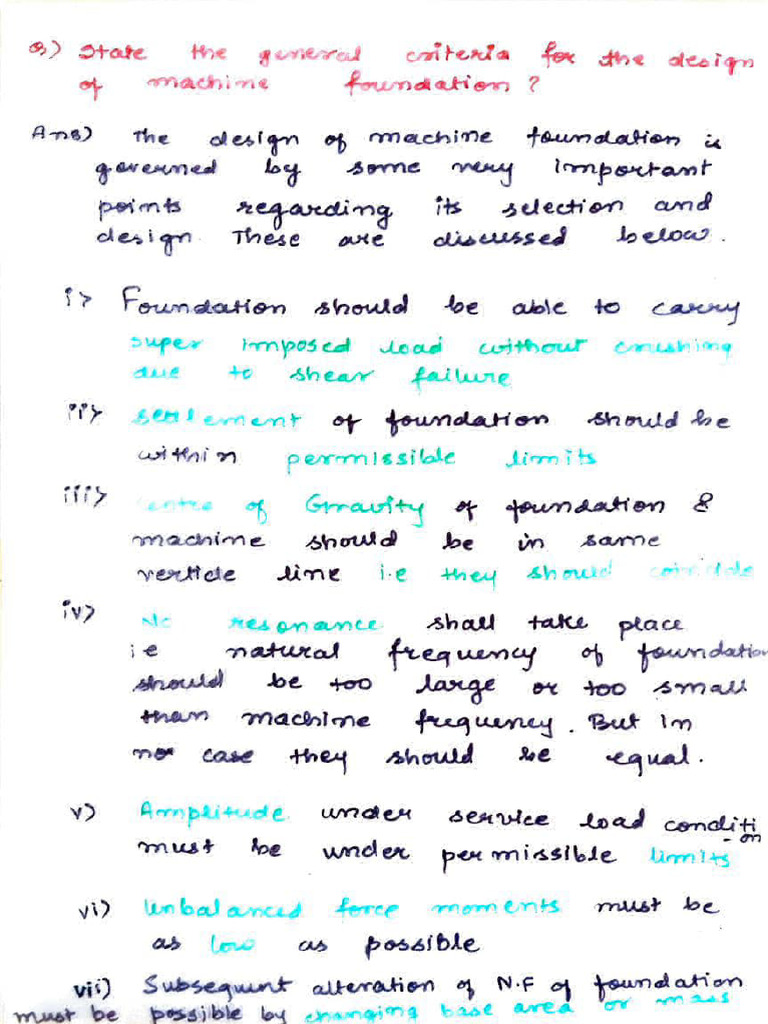 Q) State the general criteria for the design
of machine foundation ?
Ans) The design of machine foundation is
governed by some very important
points regarding its selection and
design. These are discussed below.
i> Foundation should be able to carry
super imposed load without crushing
due to shear failure
ii> settlement of foundation should be
within permissible limits
iii> centre of Gravity of foundation &
machine should be in same
verticle line i.e they should coincide
iv> No resonance shall take place
i.e natural frequency of foundation
should be too large or too small
than machine frequency. But in
no case they should be equal.
v) Amplitude under service load condition
must be under permissible limits
vi) Unbalanced force moments must be
as low as possible
vii) Subsequent alteration of N.F of foundation
must be possible by changing base area or mass